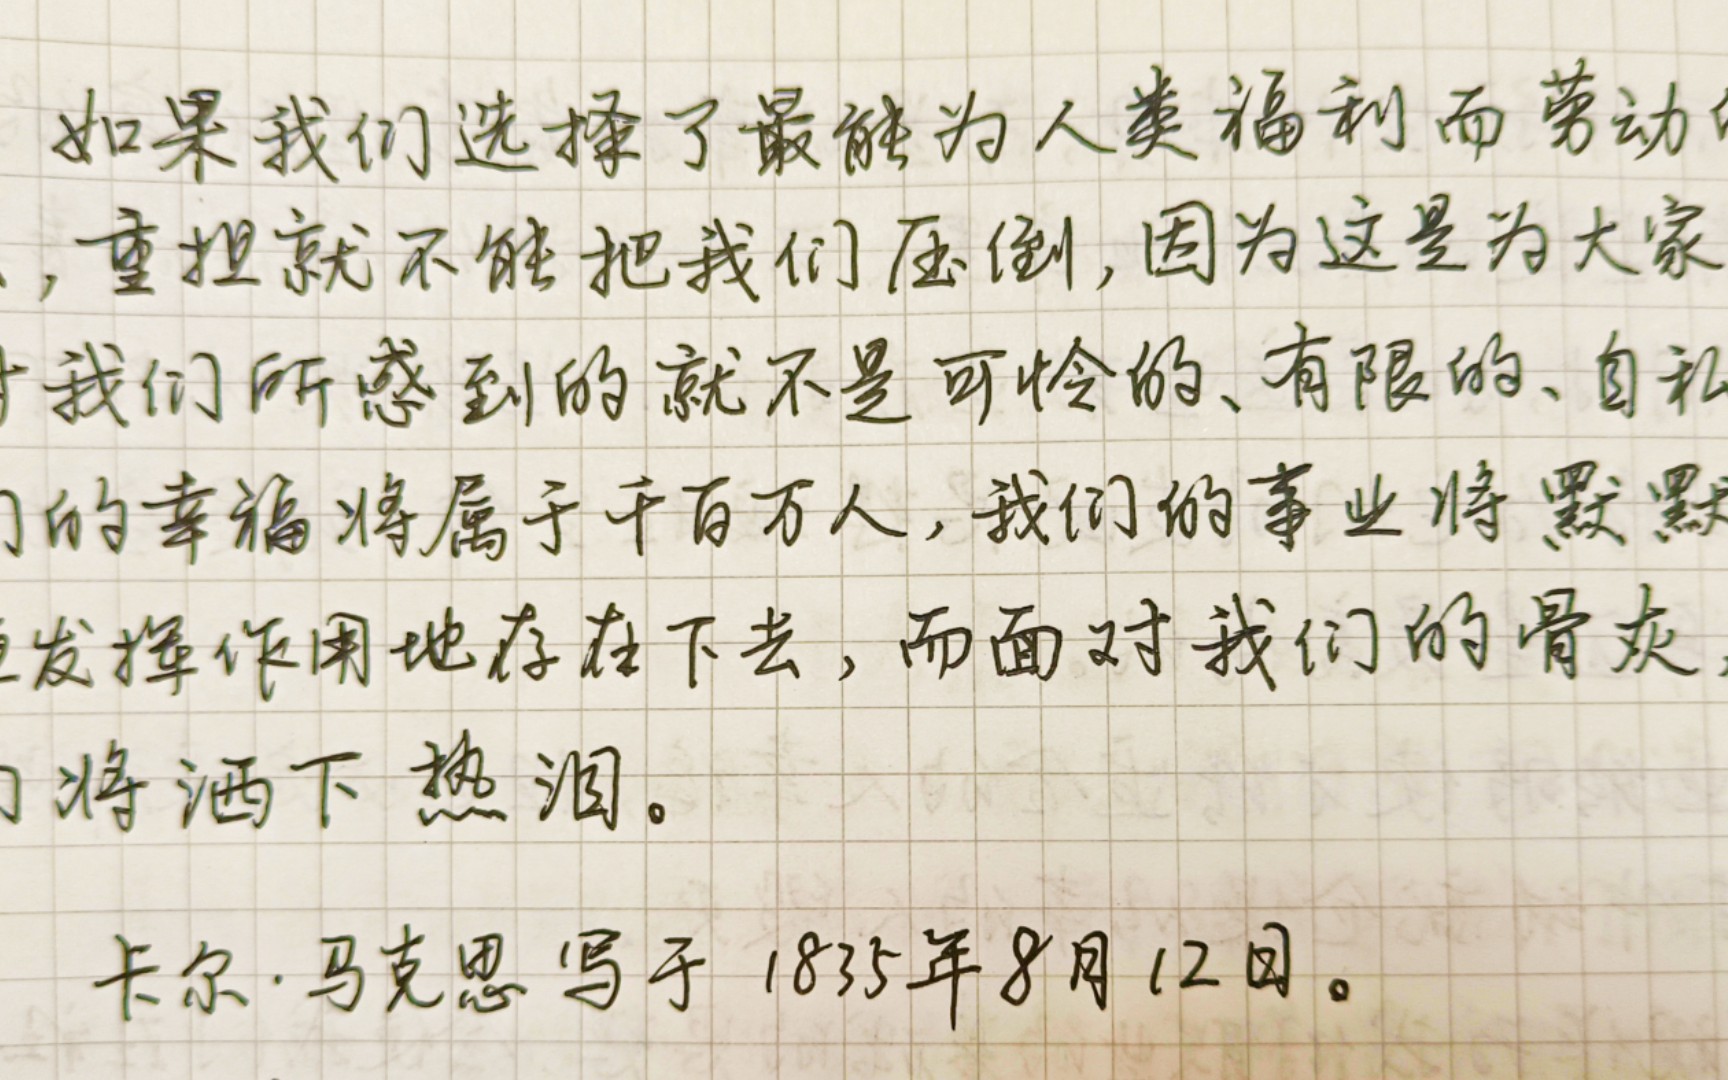 如果我们选择了最能为人类福利而劳动的
，重担就不能把我们压倒，因为这是为大家
时我们所感到的就不是可怜的、有限的、自私
们的幸福将属于千百万人，我们的事业将默默
发挥作用地存在下去，而面对我们的骨灰，
们将洒下热泪。
卡尔·马克思写于1835年8月12日。